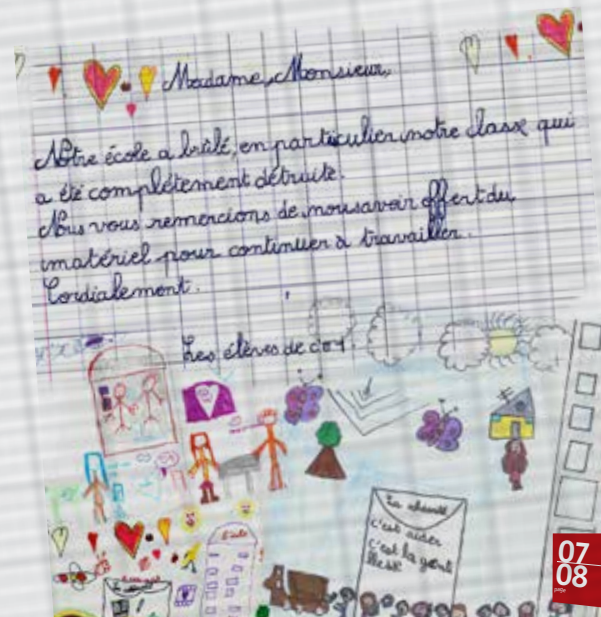 Madame, Monsieur,
Notre école a brûlé, en particulier notre classe qui
a été complétement détruite.
Nous vous remercions de nous avoir offert du
matériel pour continuer à travailler.
Cordialement.
Les élèves de
La charité
c'est aider
c'est la gentil
lesse
07
08